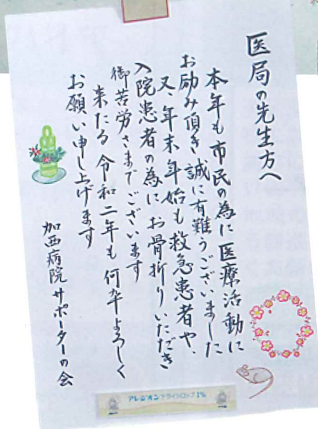 医局の先生方へ
本年も市民の為に医療活動に
お励み頂き誠に有難うございました
又、年末、年始も救急患者や、
入院患者の為にお骨折りいただき
御苦労さまでございます
来たる令和二年も何卒よろしく
お願い申し上げます
加西病院サポーターの会
アレジオンドライシロップ1%